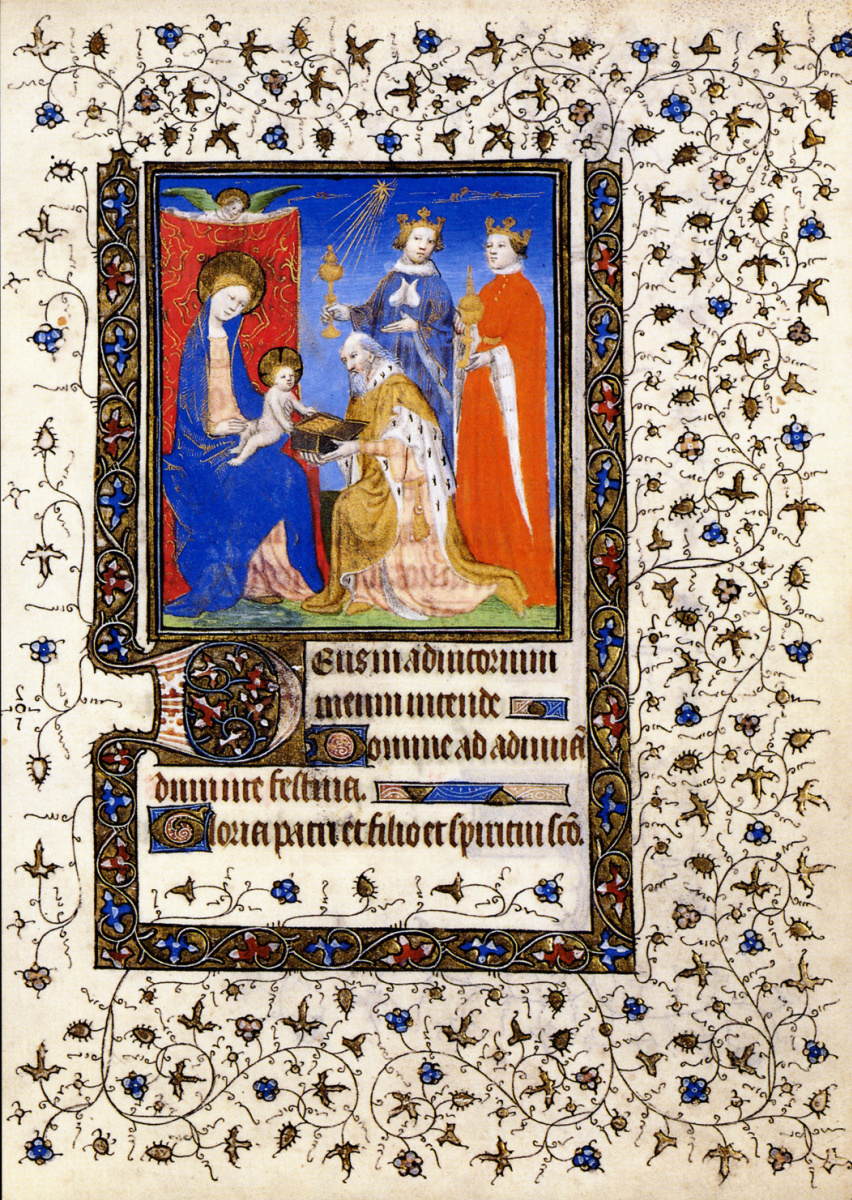 Deus in adiutorium
meum intende
Domine ad adiuuã
dum me festina.
Gloria patri et filio et spiritui scõ.